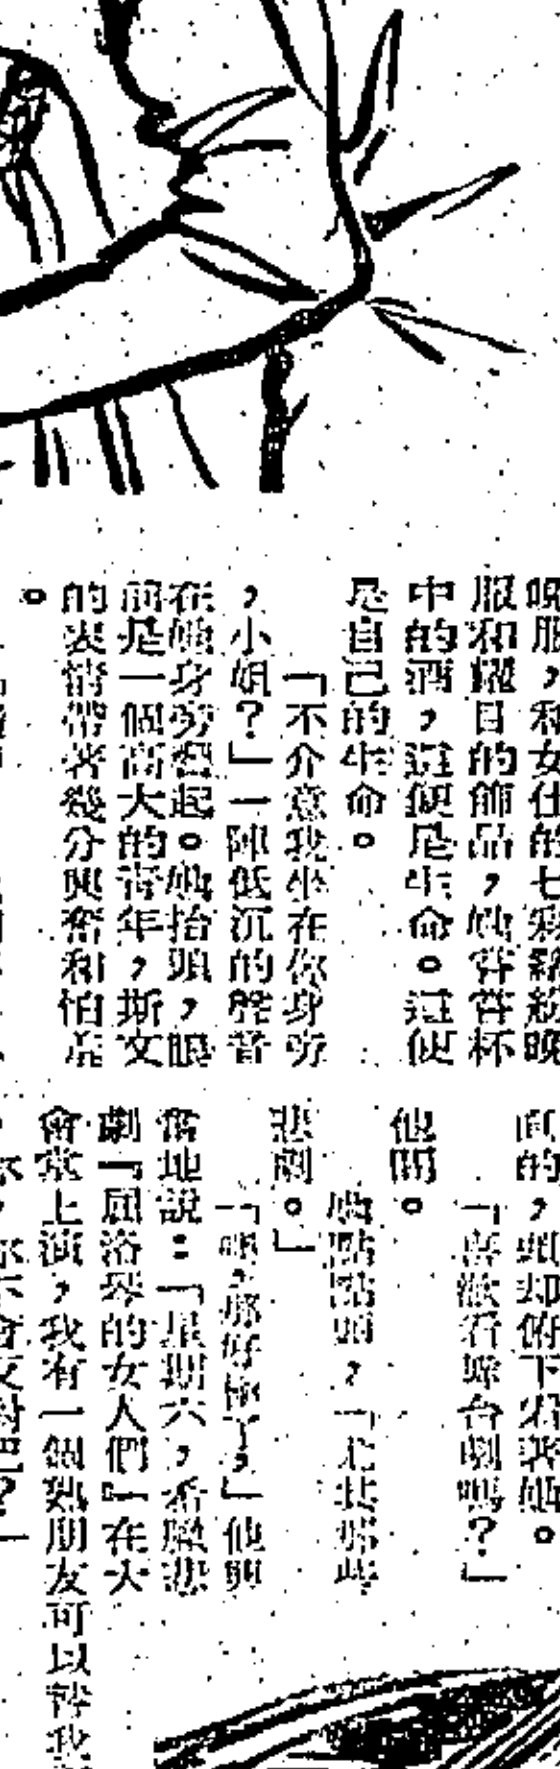 晚服，和女仕的七彩繽紛晚
服和耀目的飾品，她嘗嘗杯
中的酒，這便是生命。這便
是自己的生命。
「不介意我坐在你身旁
，小姐？」一陣低沉的聲音
在她身旁響起。她抬頭，眼
前是一個高大的青年，斯文
的表情帶著幾分興奮和怕羞
。
面的，頭却俯下看著她。
「喜歡看舞台劇嗎？」
他問。
她點點頭，「尤其那些
悲劇。」
「那好極了，」他興
奮地說：「星期六，希臘悲
劇『屈洛琴的女人們』在大
會堂上演，我有一個熟朋友可以替我
你不會反對吧？」